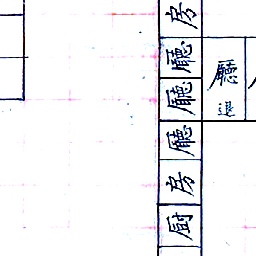 房
廳
廳
廳
房
厨
廳
退